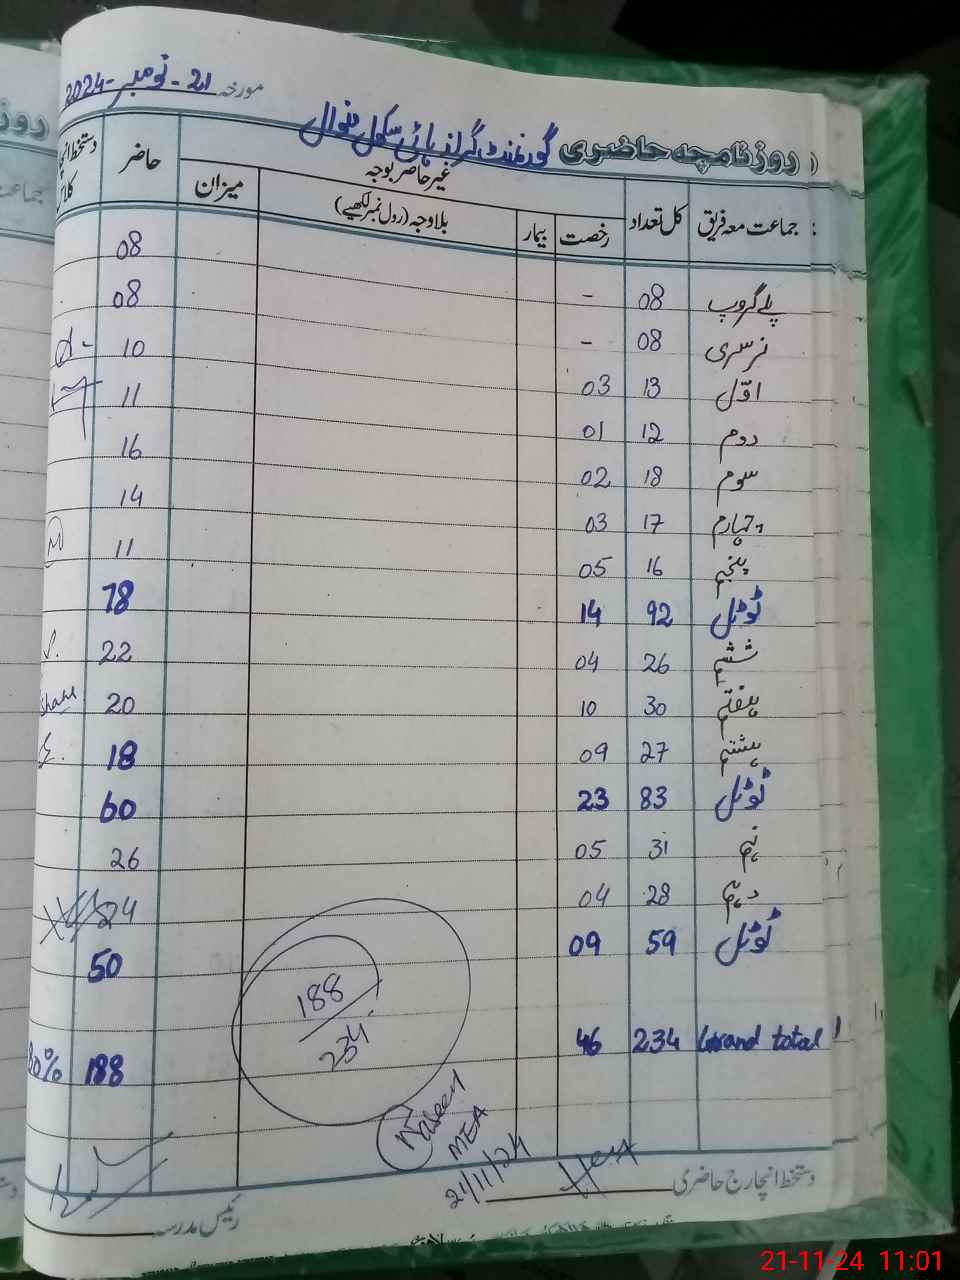 مورخہ 21-نومبر-2024
روزنامچہ حاضری گورنمنٹ گرلز ہائی سکول منوال
جماعت معہ فریق کل تعداد غیر حاضر بوجہ حاضر
رخصت بیمار بلاوجہ (رول نمبر لکھیے) میزان
پلے گروپ 08 - 08
نرسری 08 - 08
اوّل 13 03 10
دوم 12 01 11
سوم 18 02 16
چہارم 17 03 14
پنجم 16 05 11
ٹوٹل 92 14 78
ششم 26 04 22
ہفتم 30 10 20
ہشتم 27 09 18
ٹوٹل 83 23 60
نہم 31 05 26
دہم 28 04 24
ٹوٹل 59 09 50
Grand total 234 46 188 80%
188
234
Naseem
MEA
21/11/24
دستخط انچارج حاضری
رئیس مدرسہ
21-11-24 11:01